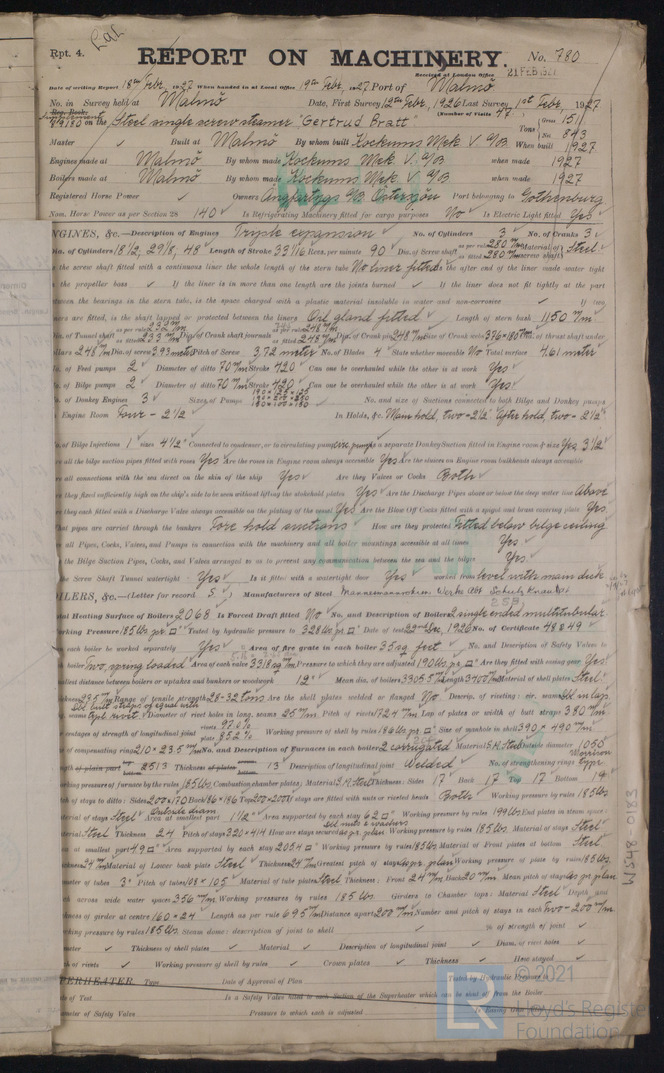 Rpt. 4. Lal
REPORT ON MACHINERY. No. 780
Received at London Office 21 FEB 1927
Date of writing Report 18th Febr. 1927 When handed in at Local Office 19th Febr. 1927. Port of Malmö
No. in Survey held at Malmö Date, First Survey 12th Febr. 1926 Last Survey 1st Febr. 1927
Reg. Book. (Number of Visits 47
89180 on the Steel single screw steamer "Gertrud Bratt" Tons Gross 1511 Net 843
Master ✓ Built at Malmö By whom built Kockums Mek. V. A/B When built 1927
Engines made at Malmö By whom made Kockums Mek. V. A/B when made 1927
Boilers made at Malmö By whom made Kockums Mek. V. A/B when made 1927
Registered Horse Power Owners Ångfartygs A/B Port belonging to Gothenburg
Nom. Horse Power as per Section 28 140 Is Refrigerating Machinery fitted for cargo purposes No Is Electric Light fitted Yes
NGINES, &c.—Description of Engines Tryple expansion No. of Cylinders 3 No. of Cranks 3
Dia. of Cylinders 18 1/2, 29 1/8, 48 Length of Stroke 33 1/16 Revs. per minute 90 Dia. of Screw shaft as per rule 280 m/m as fitted 280 m/m Material of screw shaft Steel
the screw shaft fitted with a continuous liner the whole length of the stern tube No liner fitted Is the after end of the liner made water tight
the propeller boss ✓ If the liner is in more than one length are the joints burned ✓ If the liner does not fit tightly at the part
between the bearings in the stern tube, is the space charged with a plastic material insoluble in water and non-corrosive ✓ If two
liners are fitted, is the shaft lapped or protected between the liners Oil gland fitted Length of stern bush 1150 m/m
Dia. of Tunnel shaft Dia. of Crank shaft journals as fitted 248 m/m Dia. of Crank pin 248 m/m Size of Crank webs 376×180 m/m Dia. of thrust shaft under
collars 248 m/m Dia. of screw 3.93 meter Pitch of Screw 3.72 meter No. of Blades 4 State whether moveable No Total surface 4.61 meter
No. of Feed pumps 2 Diameter of ditto 70 m/m Stroke 420 Can one be overhauled while the other is at work Yes
No. of Bilge pumps 2 Diameter of ditto 70 m/m Stroke 420 Can one be overhauled while the other is at work Yes
No. of Donkey Engines 3 Sizes of Pumps No. and size of Suctions connected to both Bilge and Donkey pumps
Engine Room Four - 2 1/2 In Holds, &c. Main hold, two - 2 1/2" After hold, two - 2 1/2"
No. of Bilge Injections 1 sizes 4 1/2" Connected to condenser, or to circulating pump Is a separate Donkey Suction fitted in Engine room & size Yes 3 1/2
Are all the bilge suction pipes fitted with roses Yes Are the roses in Engine room always accessible Yes Are the sluices on Engine room bulkheads always accessible
all connections with the sea direct on the skin of the ship Yes Are they Valves or Cocks Both
they fixed sufficiently high on the ship's side to be seen without lifting the stokehold plates Yes Are the Discharge Pipes above or below the deep water line Above
they each fitted with a Discharge Valve always accessible on the plating of the Yes Are the Blow Off Cocks fitted with a spigot and brass covering plate Yes
What pipes are carried through the bunkers Fore hold suctions How are they protected Fitted below bilge ceiling
all Pipes, Cocks, Valves, and Pumps in connection with the machinery and all boiler mountings accessible at all times Yes
the Bilge Suction Pipes, Cocks, and Valves arranged so as to prevent any communication between the sea and the bilges Yes
the Screw Shaft Tunnel watertight Yes Is it fitted with a watertight door Yes worked from level with main deck
OILERS, &c.—(Letter for record S) Manufacturers of Steel
Total Heating Surface of Boilers 2068 Is Forced Draft fitted No No. and Description of Boilers 2 single ended multitubular
Working Pressure 185 lbs. pr. □" Tested by hydraulic pressure to 328 lbs. pr. □" Date of test 22nd Dec. 1926 No. of Certificate 48 & 49
each boiler be worked separately Yes Area of fire grate in each boiler 35 sq. feet No. and Description of Safety Valves to
boiler Two, spring loaded Area of each valve 3318 sq m/m Pressure to which they are adjusted 190 lbs. pr. □" Are they fitted with easing gear Yes
smallest distance between boilers or uptakes and bunkers or woodwork 12" Mean dia. of boilers 3305.5 m/m Length 3400 m/m Material of shell plates Steel
Thickness 23.5 m/m Range of tensile strength 28-32 tons Are the shell plates welded or flanged No Descrip. of riveting: cir. seams Dbl in lap
Dbl butt straps of equal width
Diameter of rivet holes in long. seams 25 m/m Pitch of rivets 172.4 m/m Lap of plates or width of butt straps 380 m/m
percentages of strength of longitudinal joint rivets 97.3% plate 85.2% Working pressure of shell by rules 186 lbs. pr. □" Size of manhole in shell 390 × 490 m/m
of compensating ring 210 × 23.5 m/m No. and Description of Furnaces in each boiler 2 corrugated Material S.M. Steel Outside diameter 1050
Length of plain part 2513 Thickness of plates 13 Description of longitudinal joint Welded No. of strengthening rings Morrison type
Working pressure of furnace by the rules 185 lbs Combustion chamber plates: Material S.M. Steel Thickness: Sides 17 Back 17 Top 17 Bottom 19
Pitch of stays to ditto: Sides 200×170 Back 186×186 Top 200×200 If stays are fitted with nuts or riveted heads Both Working pressure by rules 185 lbs
Material of stays Steel Outside diam Area at smallest part 1 1/2" Area supported by each stay 62 □" Working pressure by rules 199 lbs End plates in steam space:
Material Steel Thickness 24 Pitch of stays 320 × 414 How are stays secured Dbl nuts & washers as pr. plan Working pressure by rules 185 lbs. Material of stays Steel
at smallest part 4.9 □" Area supported by each stay 205.4 □" Working pressure by rules 185 lbs. Material of Front plates at bottom Steel
Thickness 24 m/m Material of Lower back plate Steel Thickness 24 m/m Greatest pitch of stays as pr. plan Working pressure of plate by rules 185 lbs.
Diameter of tubes 3" Pitch of tubes 108 × 105 Material of tube plates Steel Thickness: Front 24 m/m Back 20 m/m Mean pitch of stays as pr. plan
across wide water spaces 356 m/m Working pressures by rules 185 lbs Girders to Chamber tops: Material Steel Depth and
thickness of girder at centre 160 × 24 Length as per rule 695 m/m Distance apart 200 m/m Number and pitch of stays in each Two - 200 m/m
Working pressure by rules 185 lbs. Steam dome: description of joint to shell ✓ % of strength of joint ✓
Diameter ✓ Thickness of shell plates ✓ Material ✓ Description of longitudinal joint ✓ Diam. of rivet holes ✓
Pitch of rivets ✓ Working pressure of shell by rules ✓ Crown plates ✓ Thickness ✓ How stayed ✓
PERHEATER. Type Date of Approval of Plan Tested by Hydraulic Pressure to
Date of Test Is a Safety Valve fitted to each Section of the Superheater which can be shut off from the Boiler
Diameter of Safety Valve Pressure to which each is adjusted Is Easing Gear fitted
W548-0183
LR © 2021
Lloyd's Register
Foundation